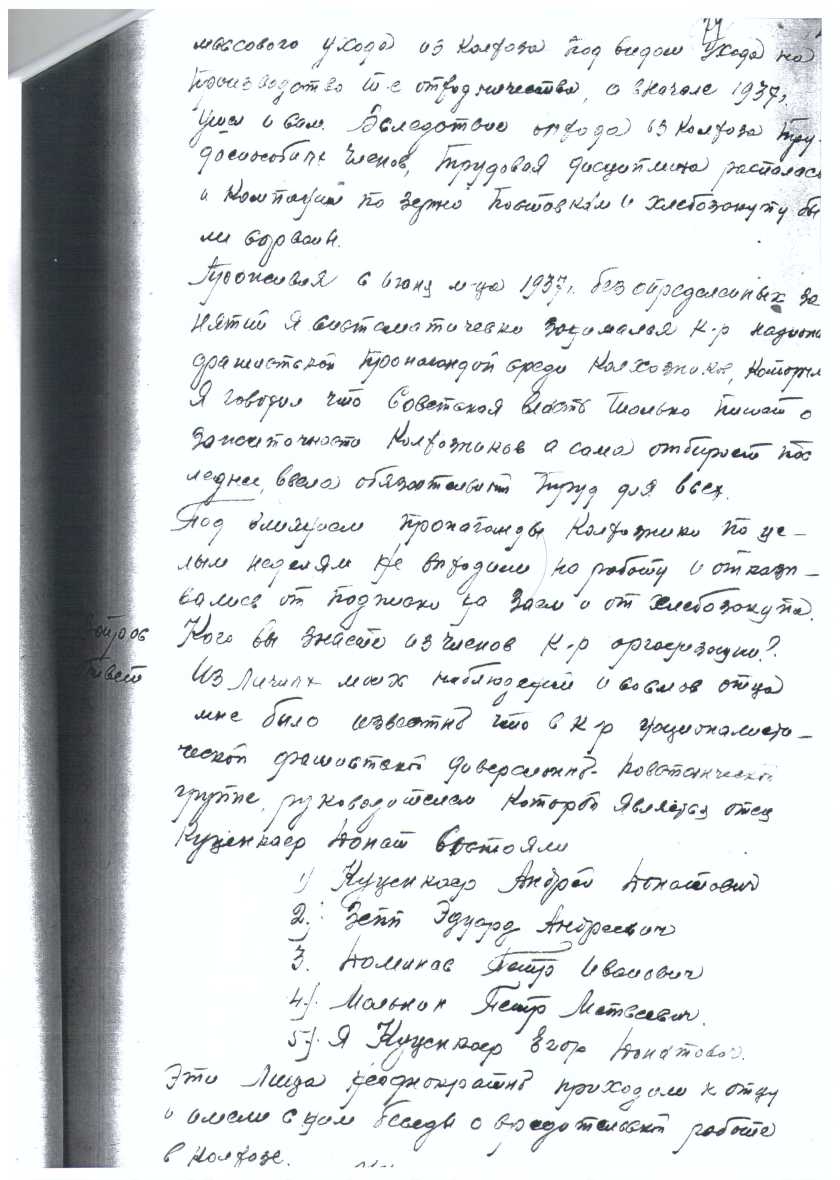 77
массового ухода из колхоза под видом ухода на
производство т-е отходничество, а вначале 1937 г.
ушел и сам. Вследствие отхода из колхоза тру-
доспособных членов, трудовая дисциплина распалась
и кампании по зерно поставкам и хлебозакупу бы
ли сорваны.
Проживая с июня м-ца 1937 г. без определенных за
нятий я систематически занимался к-р национ
фашистской пропагандой среди колхозников, которым
я говорил что Советская власть только пишет о
зажиточности колхозников а сама отбирает пос
леднее, ввела обязательный труд для всех.
Под влиянием пропаганды колхозники по це-
лым неделям не выходили на работу и отказы-
вались от подписки на заем и от хлебозакупа.
Вопрос Кого вы знаете из членов к-р организации?
Ответ Из личных моих наблюдений и со слов отца
мне было известно что в к-р националисти-
ческой фашистской диверсионно-повстанческой
группе, руководителем которой является отец
Куценгаер Донат состояли
1) Куценгаер Андрей Донатович
2) Зепп Эдуард Андреевич
3. Доминов Петр Иванович
4). Мальнин Петр Матвеевич.
5). Я Куценгаер Егор Донатович.
Эти лица неоднократно приходили к отцу
и имели с ним беседы о вредительской работе
в колхозе.